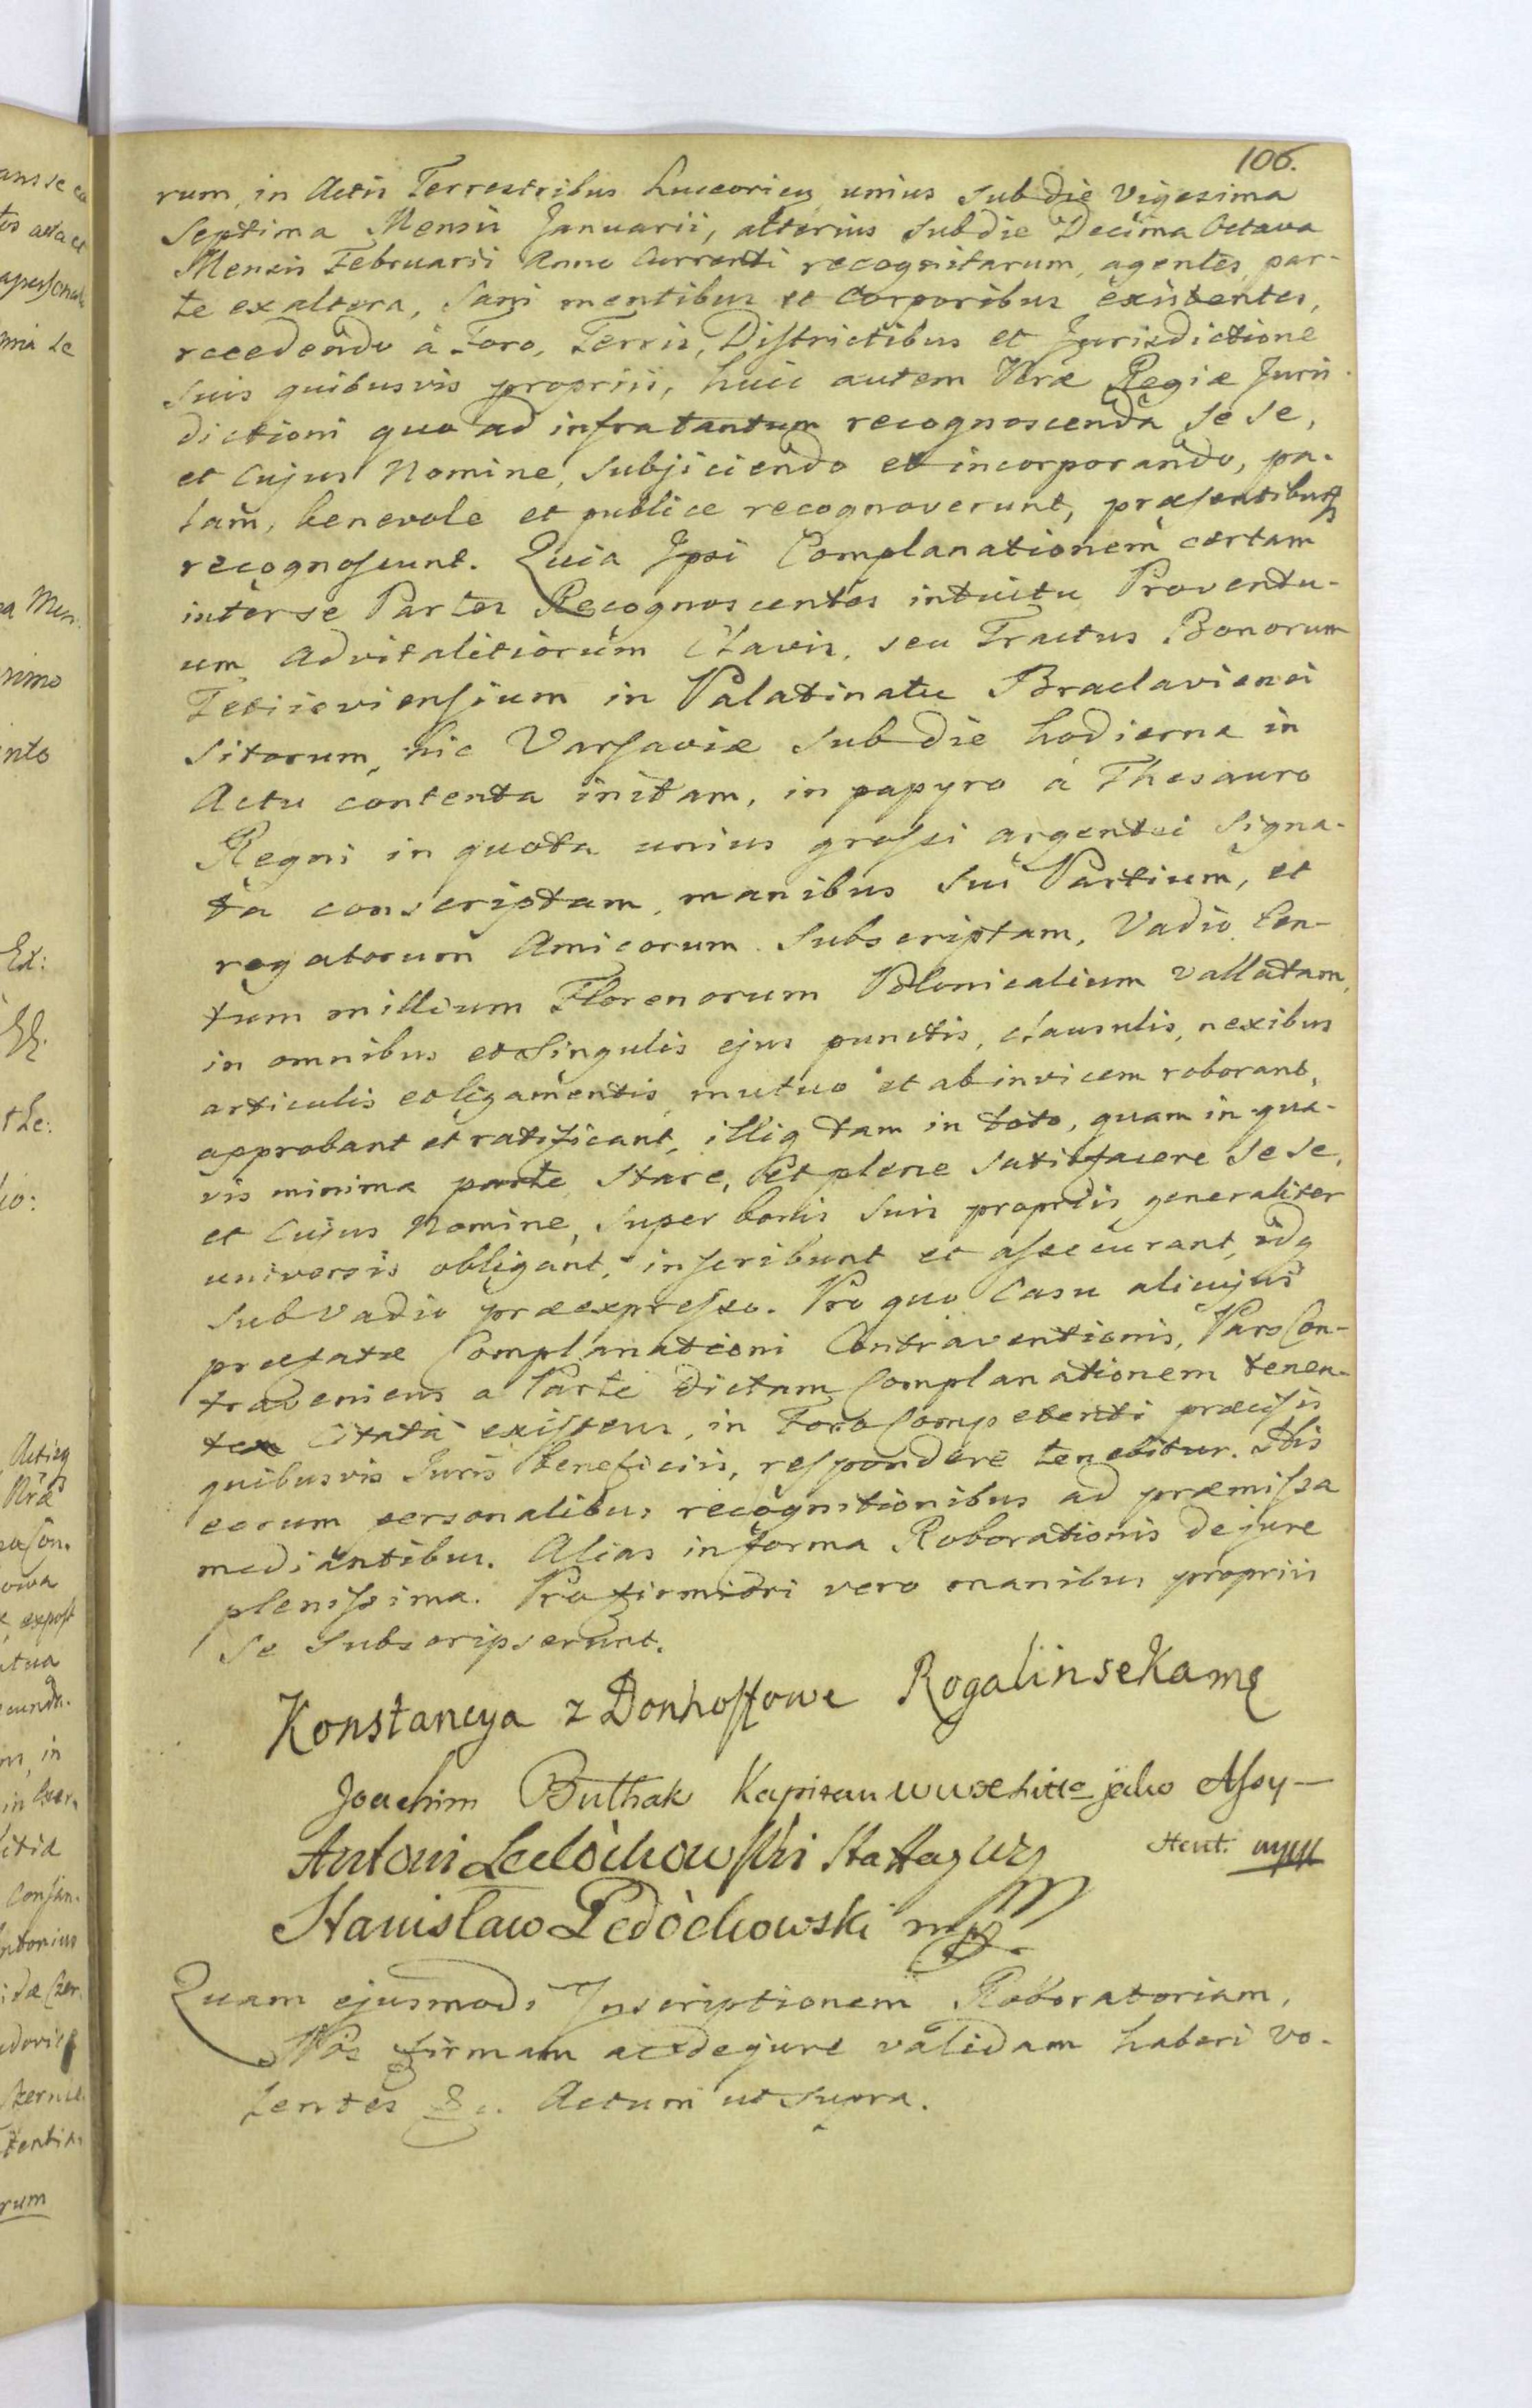 106.
rum, in Actis Terrestribus Luceorien unius sub die Vigesima
Septima Mensis Januarii, alterius sub die Decima Octava
Mensis Februarii Anno Currenti recognitarum, agentes, par-
te ex altera, Sani mentibus et Corporibus existentes,
recedendo à Foro, Terris, Districtibus et Jurisdictione
suis quibusvis propriis, huic autem Vræ Regiæ Juris
dictioni quo ad infra tantum recognoscenda se se,
et Cujus Nomine, subjiciendo et incorporando, pa-
lam, benevole et publice recognoverunt, præsentibusq
recognoscunt. Quia Ipsi Complanationem certam
inter se Partes Recognoscentes intuitu Proventu-
um Advitalitiorum Clavis, seu Tractus Bonorum
Tetijoviensium in Palatinatu Braclaviensi
sitorum, hic Varsaviæ sub die hodierna in
Actu contenta initam, in papyro à Thesauro
Regni in quota unius grossi argentei signa-
ta conscriptam, manibus sui Partium, et
rogatorum Amicorum subscriptam, Vadio Cen-
tum millium Florenorum Polonicalium vallatam,
in omnibus et singulis ejus punctis, clausulis, nexibus
articulis et ligamentis, mutuo et ab invicem roborant,
approbant et ratificant, illiq tam in toto, quam in qua-
vis minima parte stare, et plene satisfacere se se,
et Cujus Nomine, super bonis suis propriis generaliter
universis obligant, inscribunt et assecurant, idq
sub Vadio præexpresso. Pro quo Casu alicujus
præfatæ Complanationi Contraventionis, Pars Con-
traveniens a Parte dictam Complanationem tenen-
te Citata existens, in Foro Competenti præcisis
quibusvis Juris beneficiis, respondere tenebitur. His
eorum personalibus recognitionibus ad præmissa
mediantibus. Alias in forma Roborationis de jure
plenissima. Pro firmiori vero manibus propriis
se subscripserunt.
Konstancya z Donhoffowe Rogalinsekamę
Joachim Buthak Kapitan jako Assy-
stent. mpp
Antoni Ledòchowski
Stanisław Ledòchowski mpp
Quam ejusmodi Inscriptionem Roboratoriam,
Nos firmam ac de jure validam haberi vo-
lentes &c. Actum ut supra.